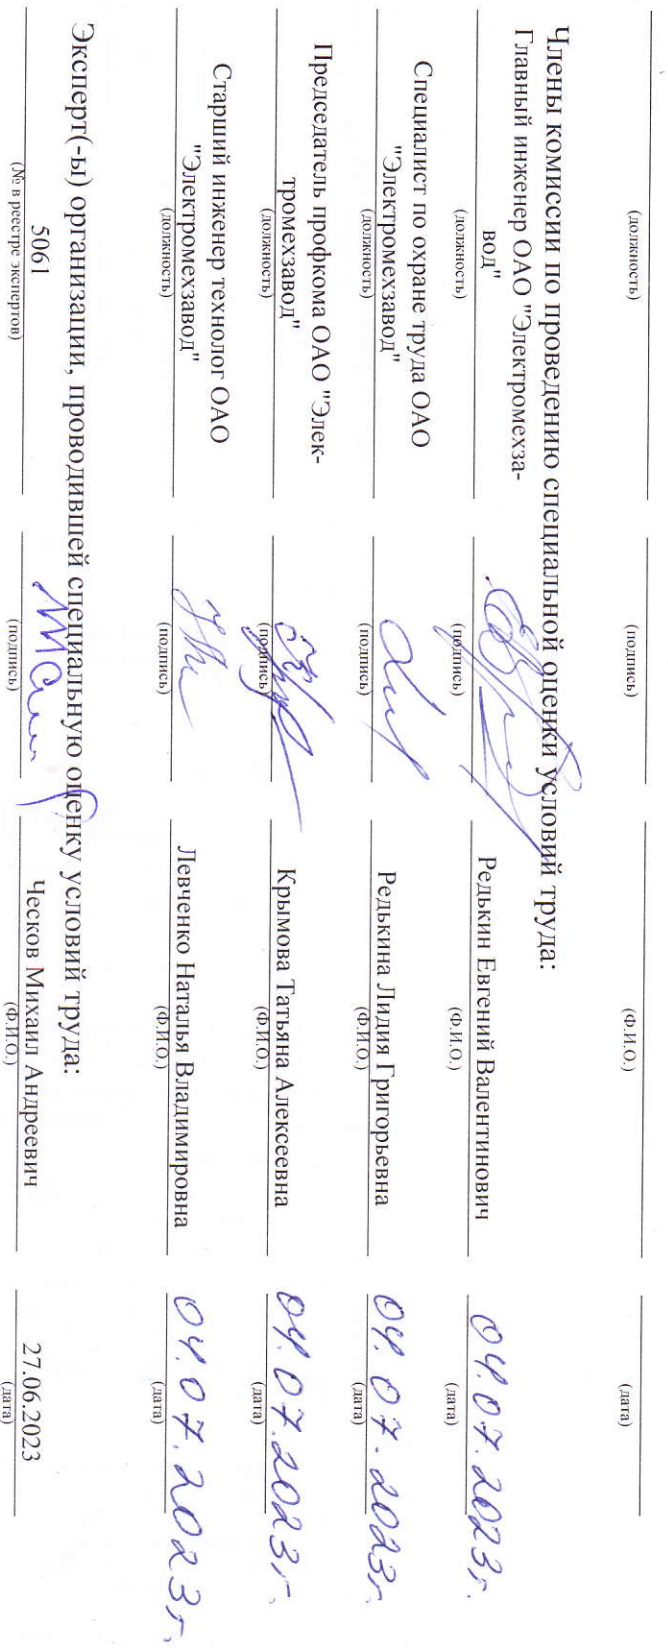 (должность) (подпись) (Ф.И.О.) (дата)
Члены комиссии по проведению специальной оценки условий труда:
Главный инженер ОАО "Электромехза-
вод" Редькин Евгений Валентинович 04.07.2023г.
(должность) (подпись) (Ф.И.О.) (дата)
Специалист по охране труда ОАО
"Электромехзавод" Редькина Лидия Григорьевна 04.07.2023г.
(должность) (подпись) (Ф.И.О.) (дата)
Председатель профкома ОАО "Элек-
тромехзавод" Крымова Татьяна Алексеевна 04.07.2023г.
(должность) (подпись) (Ф.И.О.) (дата)
Старший инженер технолог ОАО
"Электромехзавод" Левченко Наталья Владимировна 04.07.2023г.
(должность) (подпись) (Ф.И.О.) (дата)
Эксперт(-ы) организации, проводившей специальную оценку условий труда:
5061 Ческов Михаил Андреевич 27.06.2023
(№ в реестре экспертов) (подпись) (Ф.И.О.) (дата)